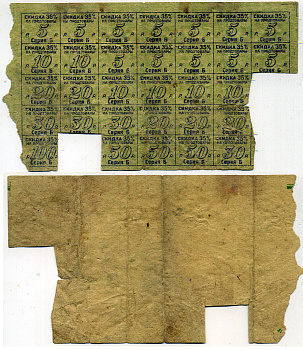 СКИДКА 35% СКИДКА 35% СКИДКА 35% СКИДКА 35% СКИДКА 35% СКИДКА 35% СКИДКА 35%
НА ПРОДТОВАРЫ НА ПРОДТОВАРЫ НА ПРОДТОВАРЫ НА ПРОДТОВАРЫ НА ПРОДТОВАРЫ НА ПРОДТОВАРЫ НА ПРОДТОВАРЫ
5 5 5 5 5 5 5
Серия Б Серия Б Серия Б Серия Б Серия Б Серия Б Серия Б
СКИДКА 35% СКИДКА 35% СКИДКА 35% СКИДКА 35% СКИДКА 35% СКИДКА 35% СКИДКА 35%
НА ПРОДТОВАРЫ НА ПРОДТОВАРЫ НА ПРОДТОВАРЫ НА ПРОДТОВАРЫ НА ПРОДТОВАРЫ НА ПРОДТОВАРЫ НА ПРОДТОВАРЫ
10 10 5 5 5 5 5
Серия Б Серия Б Серия Б Серия Б Серия Б Серия Б Серия Б
СКИДКА 35% СКИДКА 35% СКИДКА 35% СКИДКА 35% СКИДКА 35% СКИДКА 35%
НА ПРОДТОВАРЫ НА ПРОДТОВАРЫ НА ПРОДТОВАРЫ НА ПРОДТОВАРЫ НА ПРОДТОВАРЫ НА ПРОДТОВАРЫ
20 20 10 10 10 10
Серия Б Серия Б Серия Б Серия Б Серия Б Серия Б
СКИДКА 35% СКИДКА 35% СКИДКА 35% СКИДКА 35% СКИДКА 35% СКИДКА 35%
НА ПРОДТОВАРЫ НА ПРОДТОВАРЫ НА ПРОДТОВАРЫ НА ПРОДТОВАРЫ НА ПРОДТОВАРЫ НА ПРОДТОВАРЫ
30 30 20 20 20
Серия Б Серия Б Серия Б Серия Б Серия Б Серия Б
СКИДКА 35% СКИДКА 35% СКИДКА 35% СКИДКА 35% СКИДКА 35%
НА ПРОДТОВАРЫ НА ПРОДТОВАРЫ НА ПРОДТОВАРЫ НА ПРОДТОВАРЫ НА ПРОДТОВАРЫ
100 50 50 50 30
Серия Б Серия Б Серия Б Серия Б Серия Б